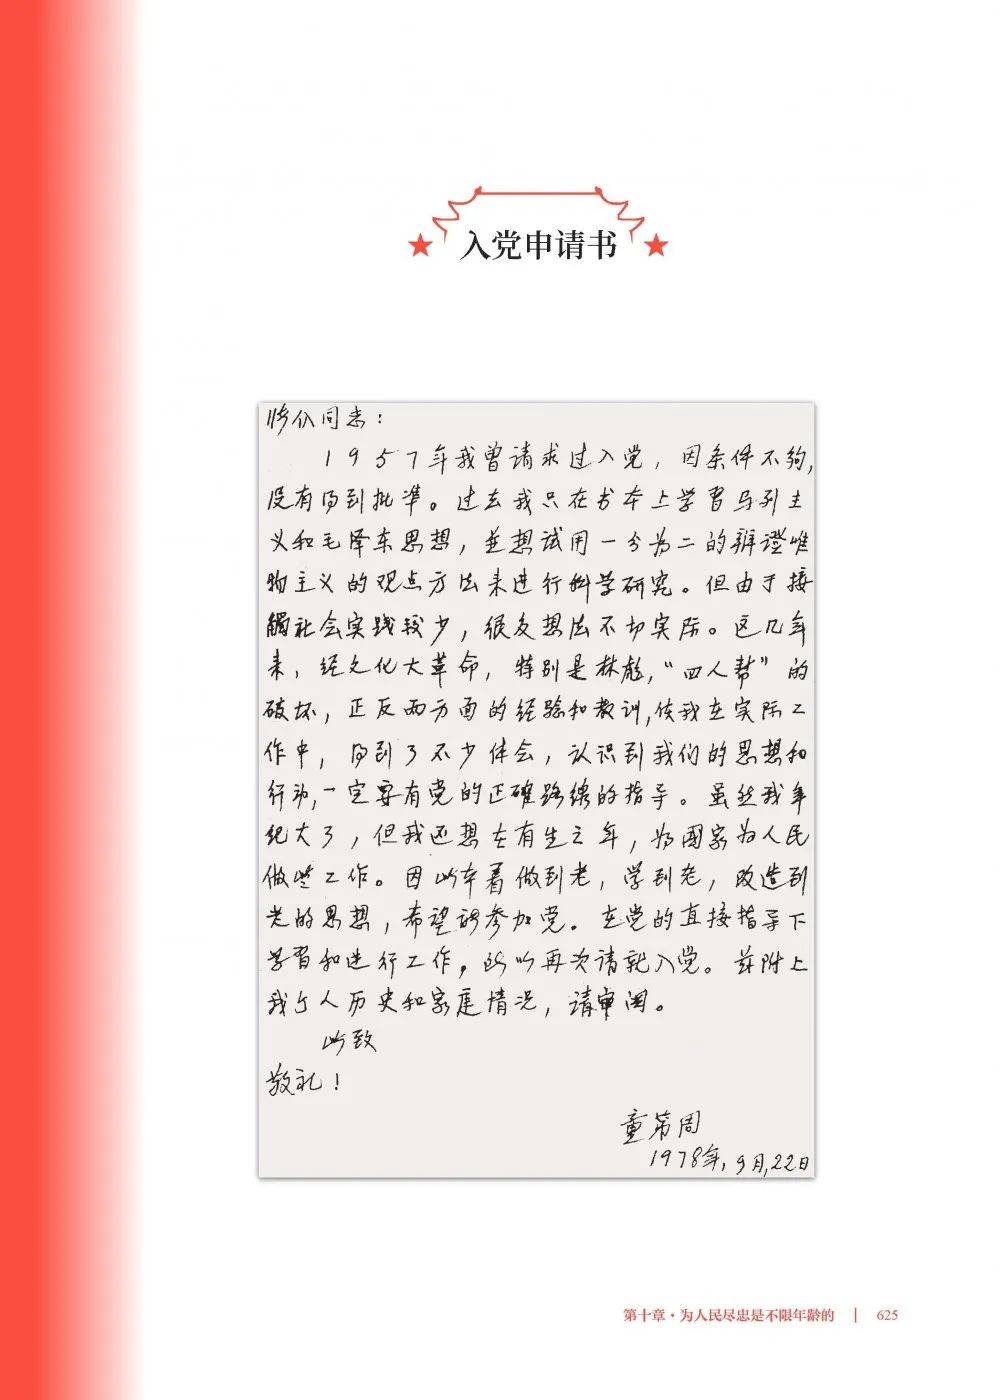 入党申请书
同志：
1957年我曾请求过入党，因条件不夠，
没有得到批准。过去我只在书本上学習马列主
义和毛泽东思想，並想试用一分为二的辨證唯
物主义的观点方法来进行科学研究。但由于接
觸社会实践较少，很多想法不切实际。这几年
来，经文化大革命，特别是林彪，“四人帮”的
破坏，正反两方面的经验和教训，使我在实际工
作中，得到了不少体会，认识到我们的思想和
行动，一定要有党的正确路线的指导。虽然我年
纪大了，但我还想在有生之年，为國家为人民
做些工作。因此本着做到老，学到老，改造到
老的思想，希望能参加党。在党的直接指导下
学習和进行工作，所以再次请求入党。兹附上
我个人历史和家庭情况，请审阅。
此致
敬礼！
童第周
1978年，9月，22日
第十章·为人民尽忠是不限年龄的 | 625